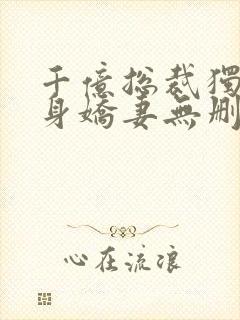 千億總裁獨
身嬌妻無刪
心在流浪